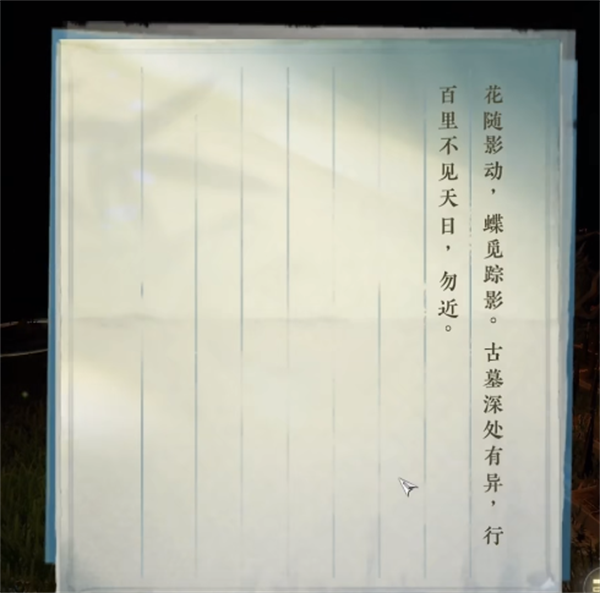 花随影动，蝶觅踪影。古墓深处有异，行
百里不见天日，勿近。